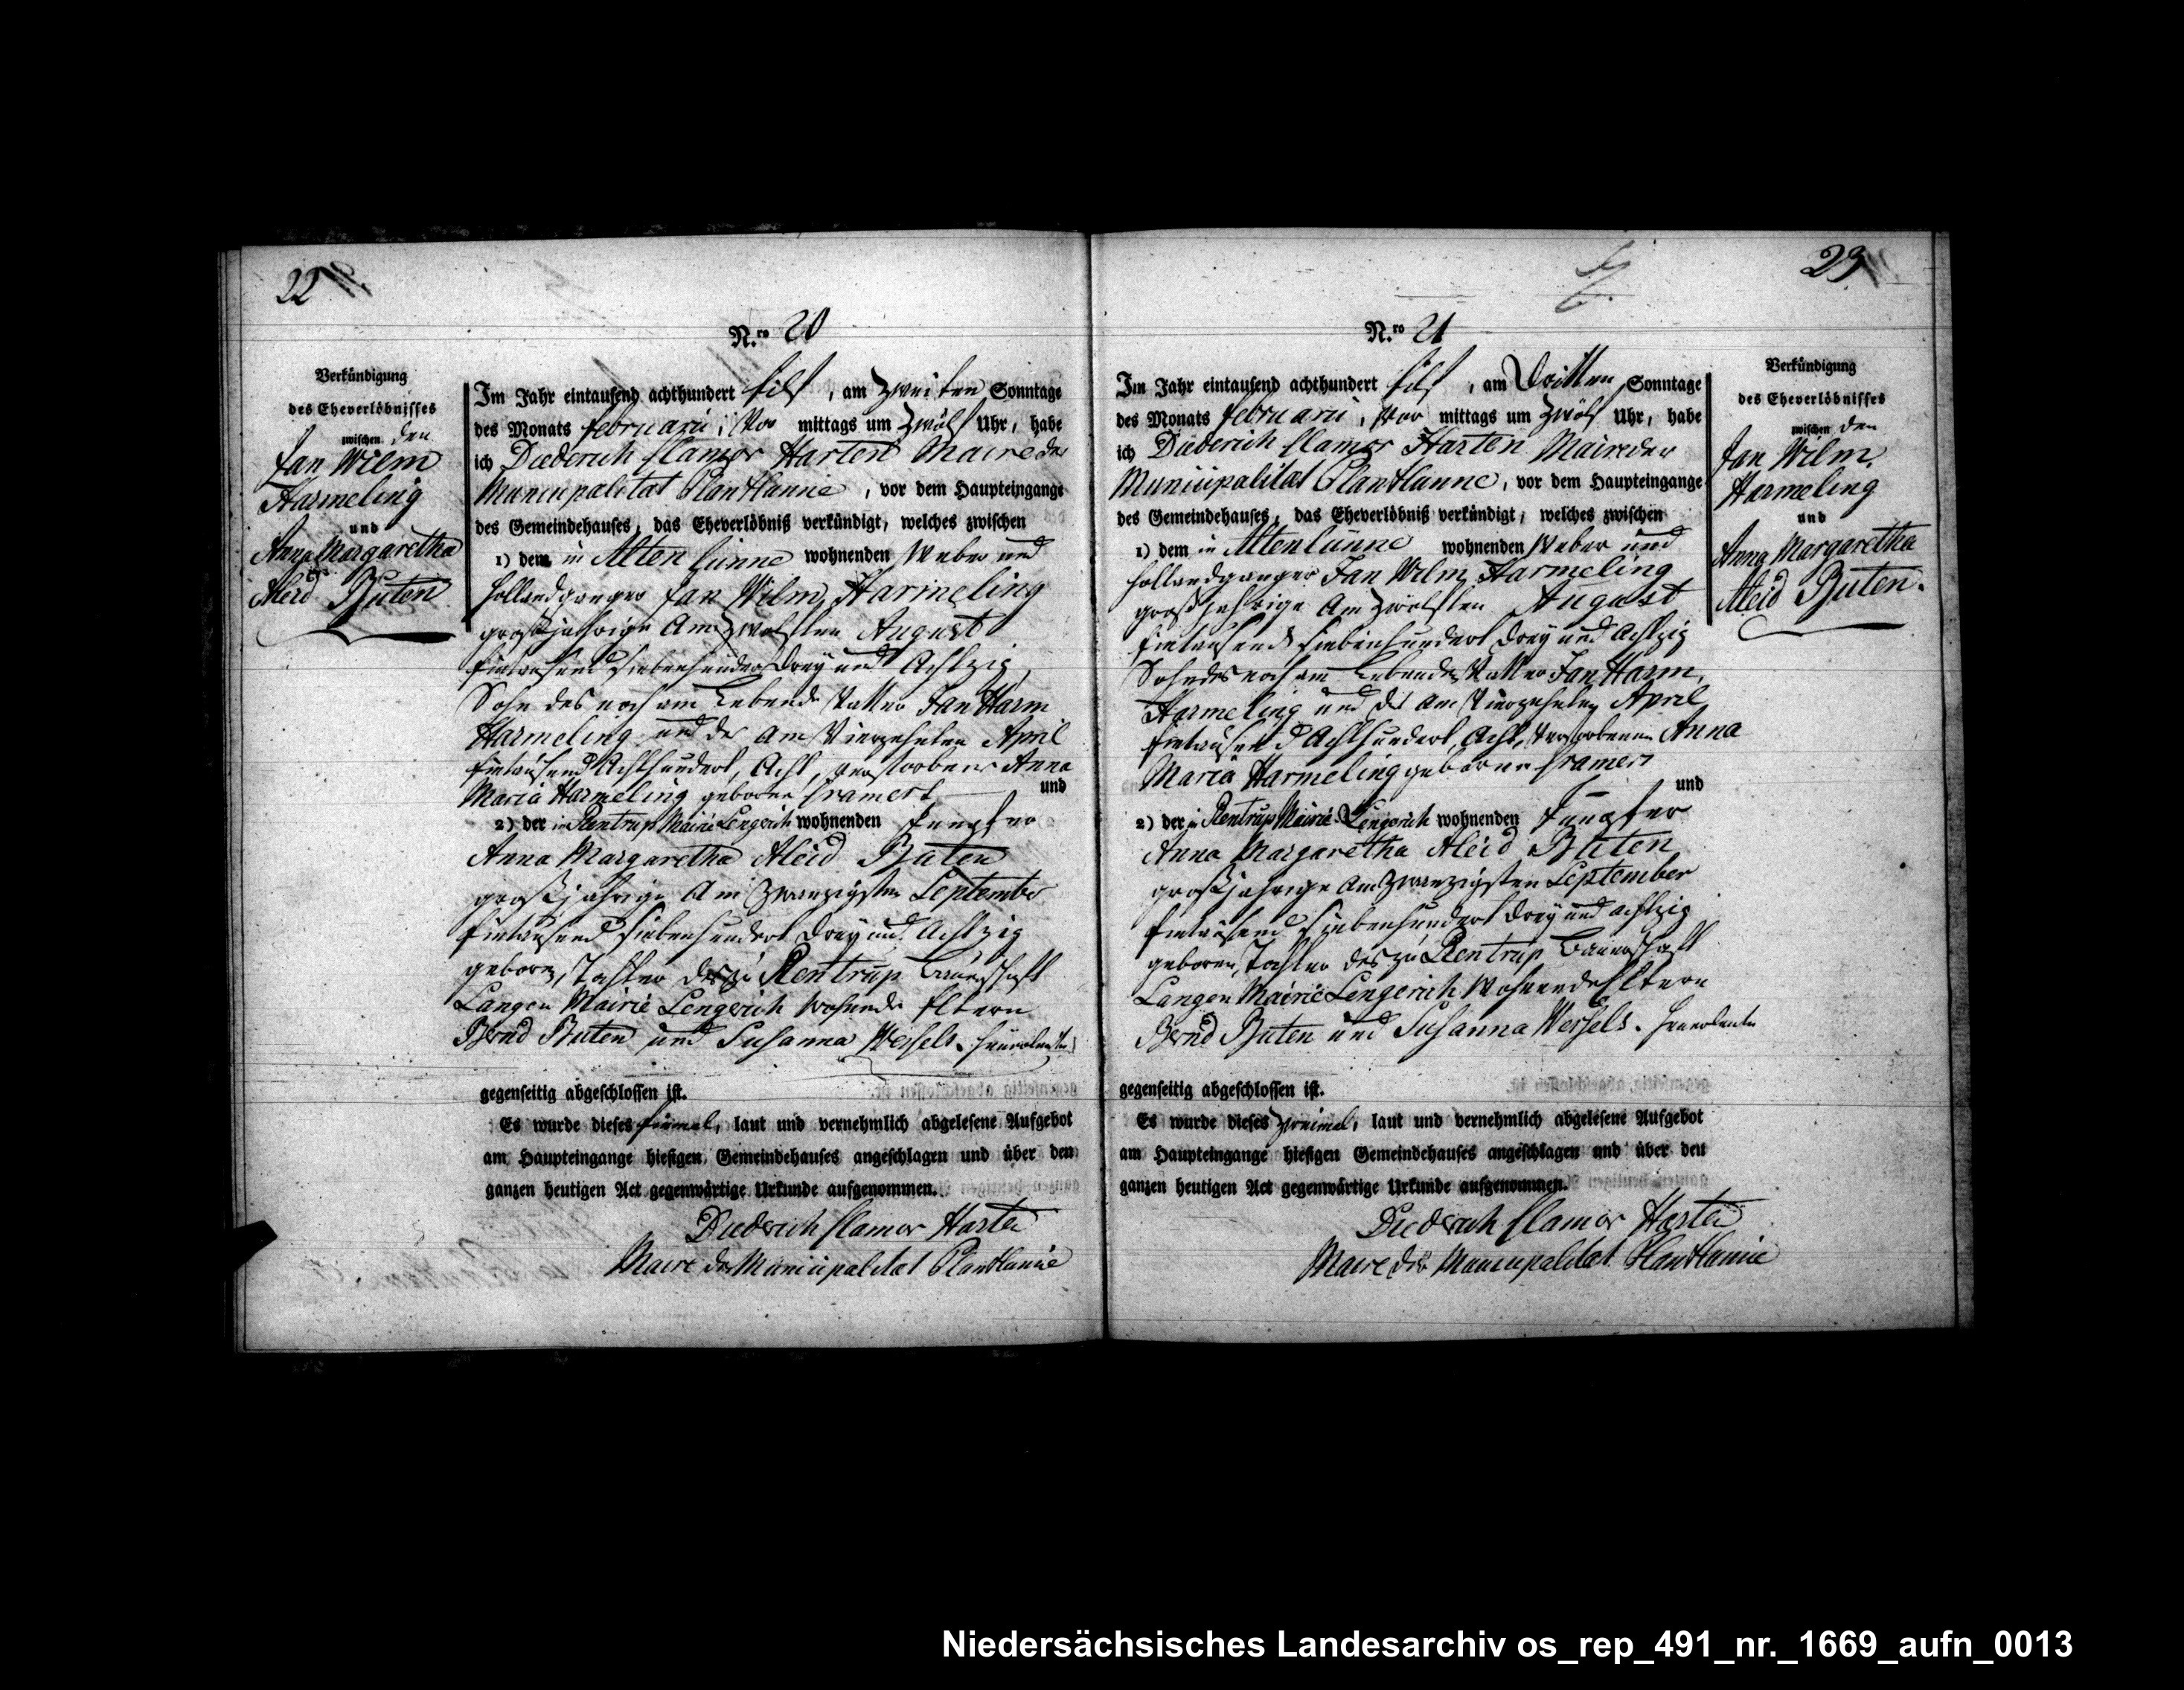 22
N.ro 20
Verkündigung
des Eheverlöbnisses
zwischen den
Jan Wilm
Harmeling
und
Anna Margaretha
Aleid Buten
Im Jahr eintausend achthundert Eilf, am Zweiten Sonntage
des Monats februarii, Vor mittags um Zwölf Uhr, habe
ich Diederich Clamor Harten Maire der
Municipalitat Plantlunne, vor dem Haupteingange
des Gemeindehauses, das Eheverlöbniß verkündigt, welches zwischen
1) dem in Altenlünne wohnenden Weber und
Hollandganger Jan Wilm Harmeling
großjahrige Am Zwolften August
Eintausend Siebenhundert Drey und Achtzig
Sohn des noch am Lebende Vatter Jan Harm
Harmeling und der Am Vierzehnten April
Eintausend Achthundert, Acht, verstorbene Anna
Maria Harmeling geborne Cramers und
2) der in Rentrup Mairie Lengerich wohnenden Jungfer
Anna Margaretha Aleid Buten
großjahrige Am Zwanzigsten September
Eintausend Siebenhundert Drey und Achtzig
geboren, Tochter der zu Rentrup Bauerschaft
Langen Mairie Lengerich wohnende Eltern
Bernd Buten und Susanna Wessels. Heuerleute
gegenseitig abgeschlossen ist.
Es wurde dieses Einmal, laut und vernehmlich abgelesene Aufgebot
am Haupteingange hiesigen Gemeindehauses angeschlagen und über den
ganzen heutigen Act gegenwärtige Urkunde aufgenommen.
Diederich Clamor Harten
Maire der Municipalitat Plantlunne
23
N.ro 21
Im Jahr eintausend achthundert Eilf, am Dritten Sonntage
des Monats februarii, Vor mittags um Zwölf Uhr, habe
ich Diederich Clamor Harten Maire der
Municipalitat Plantlunne, vor dem Haupteingange
des Gemeindehauses, das Eheverlöbniß verkündigt, welches zwischen
1) dem in Altenlünne wohnenden Weber und
Hollandganger Jan Wilm Harmeling
großjahrige Am Zwolften August
Eintausend Siebenhundert Drey und Achtzig
Sohn des noch am Lebende Vatter Jan Harm
Harmeling und der Am Vierzehnten April
Eintausend Achthundert, Acht, verstorbenen Anna
Maria Harmeling geborne Cramers und
2) der in Rentrup Mairie Lengerich wohnenden Jungfer
Anna Margaretha Aleid Buten
großjahrige Am Zwanzigsten September
Eintausend Siebenhundert Drey und achtzig
geboren, Tochter der zu Rentrup Bauerschaft
Langen Mairie Lengerich Wohnende Eltern
Bernd Buten und Susanna Wessels. Heuerleute
gegenseitig abgeschlossen ist.
Es wurde dieses Zweimal, laut und vernehmlich abgelesene Aufgebot
am Haupteingange hiesigen Gemeindehauses angeschlagen und über den
ganzen heutigen Act gegenwärtige Urkunde aufgenommen.
Diederich Clamor Harten
Maire der Municipalitat Plantlunne
Verkündigung
des Eheverlöbnisses
zwischen den
Jan Wilm
Harmeling
und
Anna Margaretha
Aleid Buten.
Niedersächsisches Landesarchiv os_rep_491_nr._1669_aufn_0013